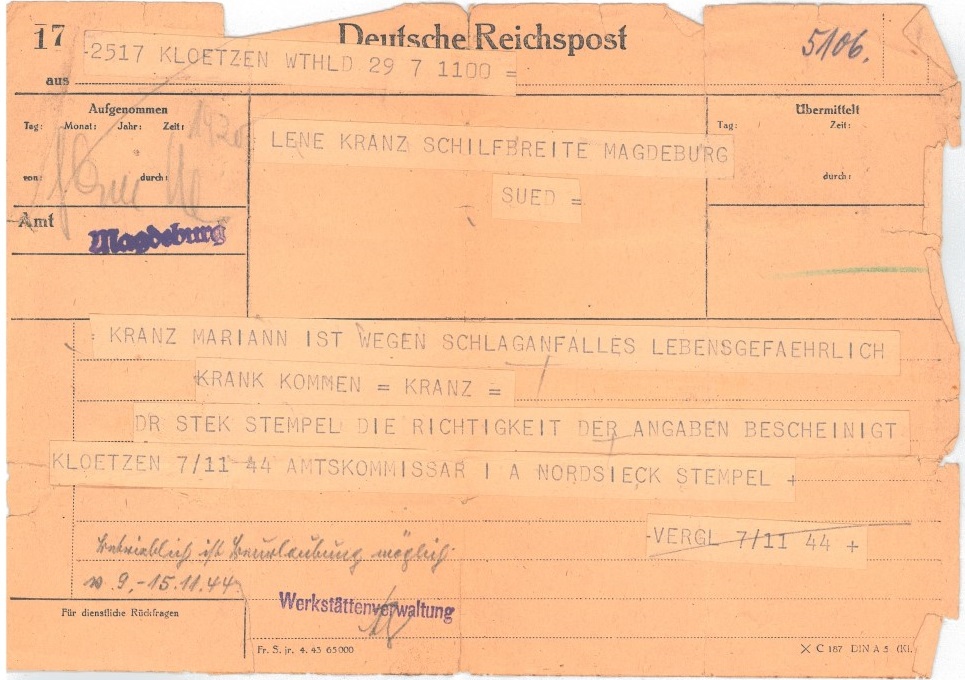 17 Deutsche Reichspost 5106.
-2517 KLOETZEN WTHLD 29 7 1100 =
aus
Aufgenommen
Tag: Monat: Jahr: Zeit:
von: durch:
Übermittelt
Tag: Zeit:
durch:
LENE KRANZ SCHILFBREITE MAGDEBURG
SUED =
Amt
Magdeburg
: KRANZ MARIANN IST WEGEN SCHLAGANFALLES LEBENSGEFAEHRLICH
KRANK KOMMEN = KRANZ =
DR STEK STEMPEL DIE RICHTIGKEIT DER ANGABEN BESCHEINIGT
KLOETZEN 7/11 44 AMTSKOMMISSAR I A NORDSIECK STEMPEL +
-VERGL 7/11 44 +
Betrieblich ist Beurlaubung möglich
v. 9.-15.11.44
Für dienstliche Rückfragen
Werkstättenverwaltung
Fr. S. jr. 4. 43 65000
X C 187 DIN A 5 (Kl.